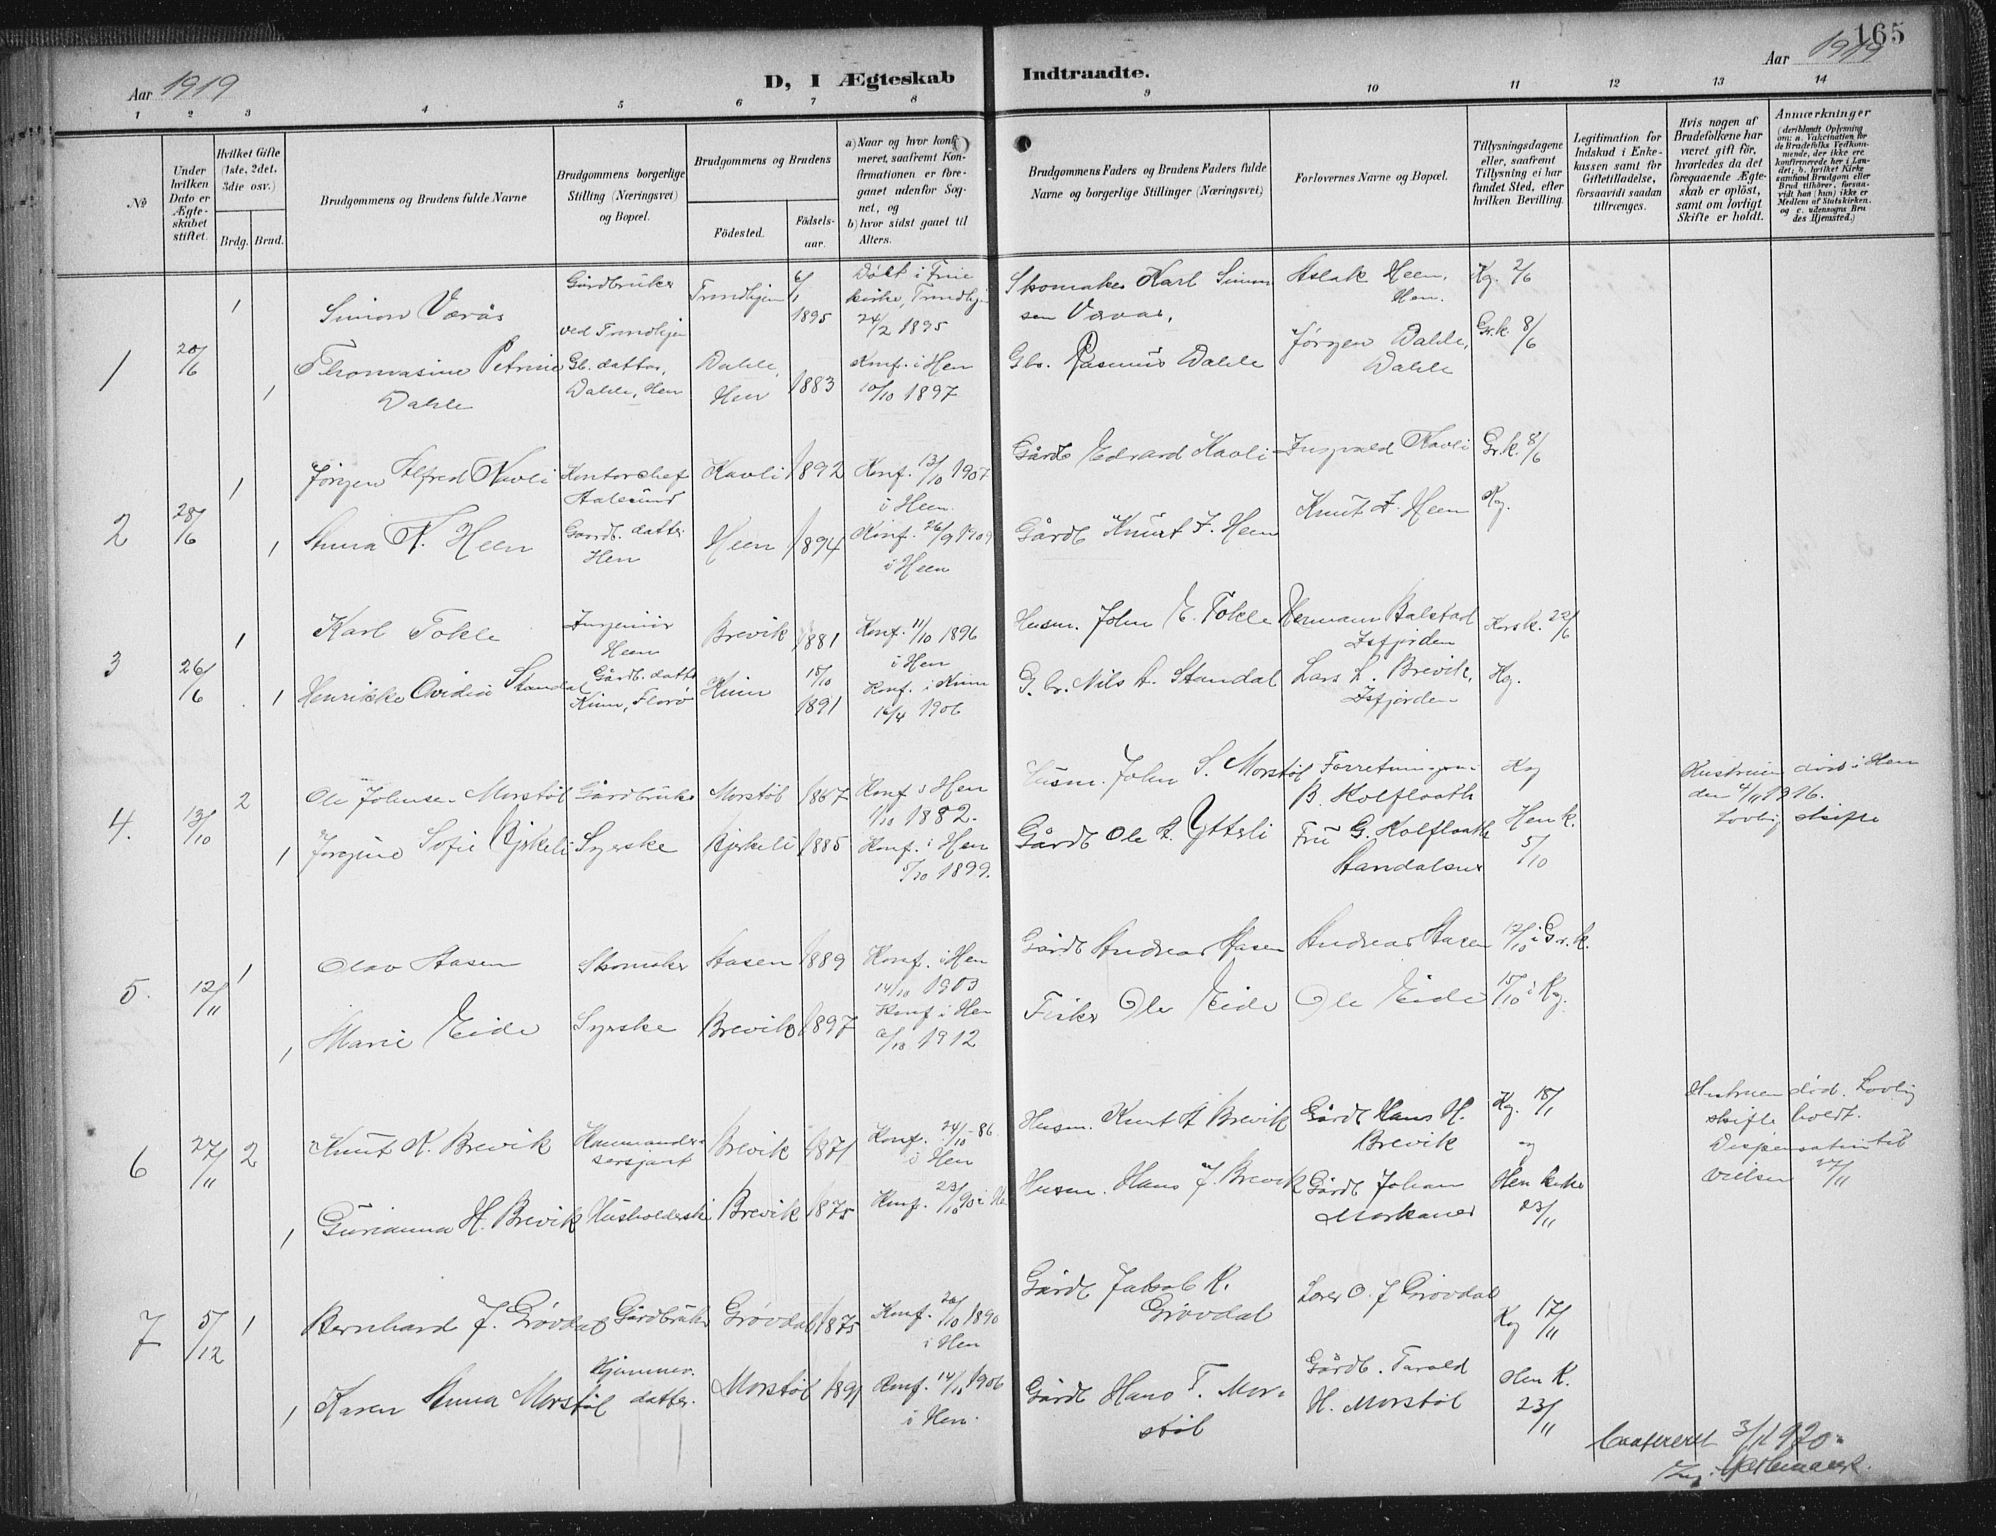 165
Aar 1919
D, I Ægteskab Indtraadte.
Aar 1919
1 2 3 4 5 6 7 8 9 10 11 12 13 14
No
Under hvilken Dato er Ægteskabet stiftet.
Hvilket Gifte (1ste, 2det, 3die osv.)
Brdg. Brud.
Brudgommens og Brudens fulde Navne
Brudgommens borgerlige Stilling (Næringsvei) og Bopæl.
Brudgommens og Brudens
Födested.
Födsels-aar.
a) Naar og hvor konfirmeret, saafremt Konfirmationen er foregaaet udenfor Sognet, og
b) hvor sidst gaaet til Alters.
Brudgommens Faders og Brudens Faders fulde Navne og borgerlige Stillinger (Næringsvei)
Forlovernes Navne og Bopæl.
Tillysningsdagene eller, saafremt Tillysning ei har fundet Sted, efter hvilken Bevilling.
Legitimation for Indskud i Enkekassen samt for Giftetilladelse, forsaavidt saadan tiltrænges.
Hvis nogen af Brudefolkene har været gift för, hvorledes da det foregaaende Ægteskab er oplöst, samt om lovligt Skifte er holdt.
Anmærkninger
(deriblandt Oplysning om: a. Vakcination for de Brudefolks Vedkommende, der ikke ere konfirmerede her i Landet; b. hvilket Kirkesamfund Brudgom eller Brud tilhörer, forsaavidt han (hun) ikke er Medlem af Statskirken, og c. udensogns Brudes Hjemsted.)
1 20/6 1 Simon Værås Gårdbruker ved Trondhjem Trondhjem 6/1 1895 Døbt i Frie kirke, Trondhjem 24/2 1895 Skomaker Karl Simonsen Værås, Aslak Heen, Hen. Kg. 2/6
1 Thomasine Petrine Dahle Gb. datter, Dahle, Hen Dahle, Hen 1883 Konf. i Hen 10/10 1897 Gbr. Rasmus Dahle Jørgen Dahle, Dahle Gr.k. 8/6
2 28/6 1 Jørgen Alfred Kavli Kontorchef Aalesund Kavli 1892 Konf. 13/10 1907 i Heen. Gårdb Edvard Kavli Ingvald Kavli Gr.k. 8/6
1 Anna K. Heen Gaardb. datter Hen Heen 1894 Konf. 26/9 1909 i Heen Gårdb Knut F. Heen Knut F. Heen Kg.
3 26/6 1 Karl Tokle Ingeniør Heen Brevik 1881 Konf. 11/10 1896 i Hen Husm. John E. Tokle Hermann Balstad Isfjorden Korsk. 22/6
1 Henrikke Ovidia Standal Gårdb. datter Kinn, Florø Kinn 18/10 1891 Konf. i Kinn 16/4 1906 G.br. Nils A. Standal Lars L. Brevik, Isfjorden Kg.
4. 13/10 2 Ole Johnsen Morstøl Gårdbruker Morstøl 1867 Konf i Hen 1/10 1882. Husm. John S. Morstøl Forretningsm. B. Kolfloath Kg Hustruen død i Hen den 4/11 1916. Lovlig skifte
1 Jørgine Sofie Bjerkeli Syerske Bjerkeli 1885 Konf. i Hen 1/10 1899. Gårdb Ole A. Ytterli Fru G. Kolfloath Hen k. 5/10
5. 12/11 1 Olav Aasen Skomaker Aasen 1889 Konf. i Hen 14/10 1903 Gårdb Andreas Aasen Andreas Aasen 12/10 i Gr.k.
1 Marie Eide Syerske Brevik 1897 Konf i Hen 6/10 1912 Fisker Ole Eide Ole Eide 15/10 i Kg.
6 27/11 2 Knut K. Brevik Kommandersersjant Brevik 1871 Konf. 24/10-86 i Hen Husm. Knut A Brevik Gårdb Hans H. Brevik Kg. 18/11 og Hustruen død. Lovlig skifte holdt. Dispensation til vielsen 27/11
1 Gurianna H. Brevik Husholderske Brevik 1875 Konf. 23/10 90 i Hen Husm. Hans J. Brevik Gårdb Johan Morkanes Hen kirke 23/11
7 5/12 1 Bernhard J. Grøvdal Gårdbruker Grøvdal 1875 Konf. 26/10 1890 i Hen Gårdb Jakob K. Grøvdal Lærer O. J Grøvdal Kg 17/11
1 Karen Anna Morstøl Hjemmev. datter. Morstøl 1891 Konf. 14/10 1906 i Hen. Gårdb Hans T. Morstøl Gårdb. Tarald H. Morstøl Hen K. 23/11
Confereret 3/1 1920.